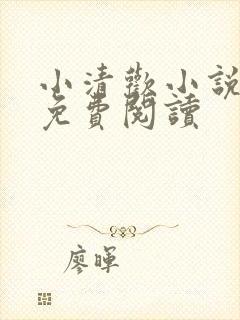 小清歡小說
免費閱讀
廖暉